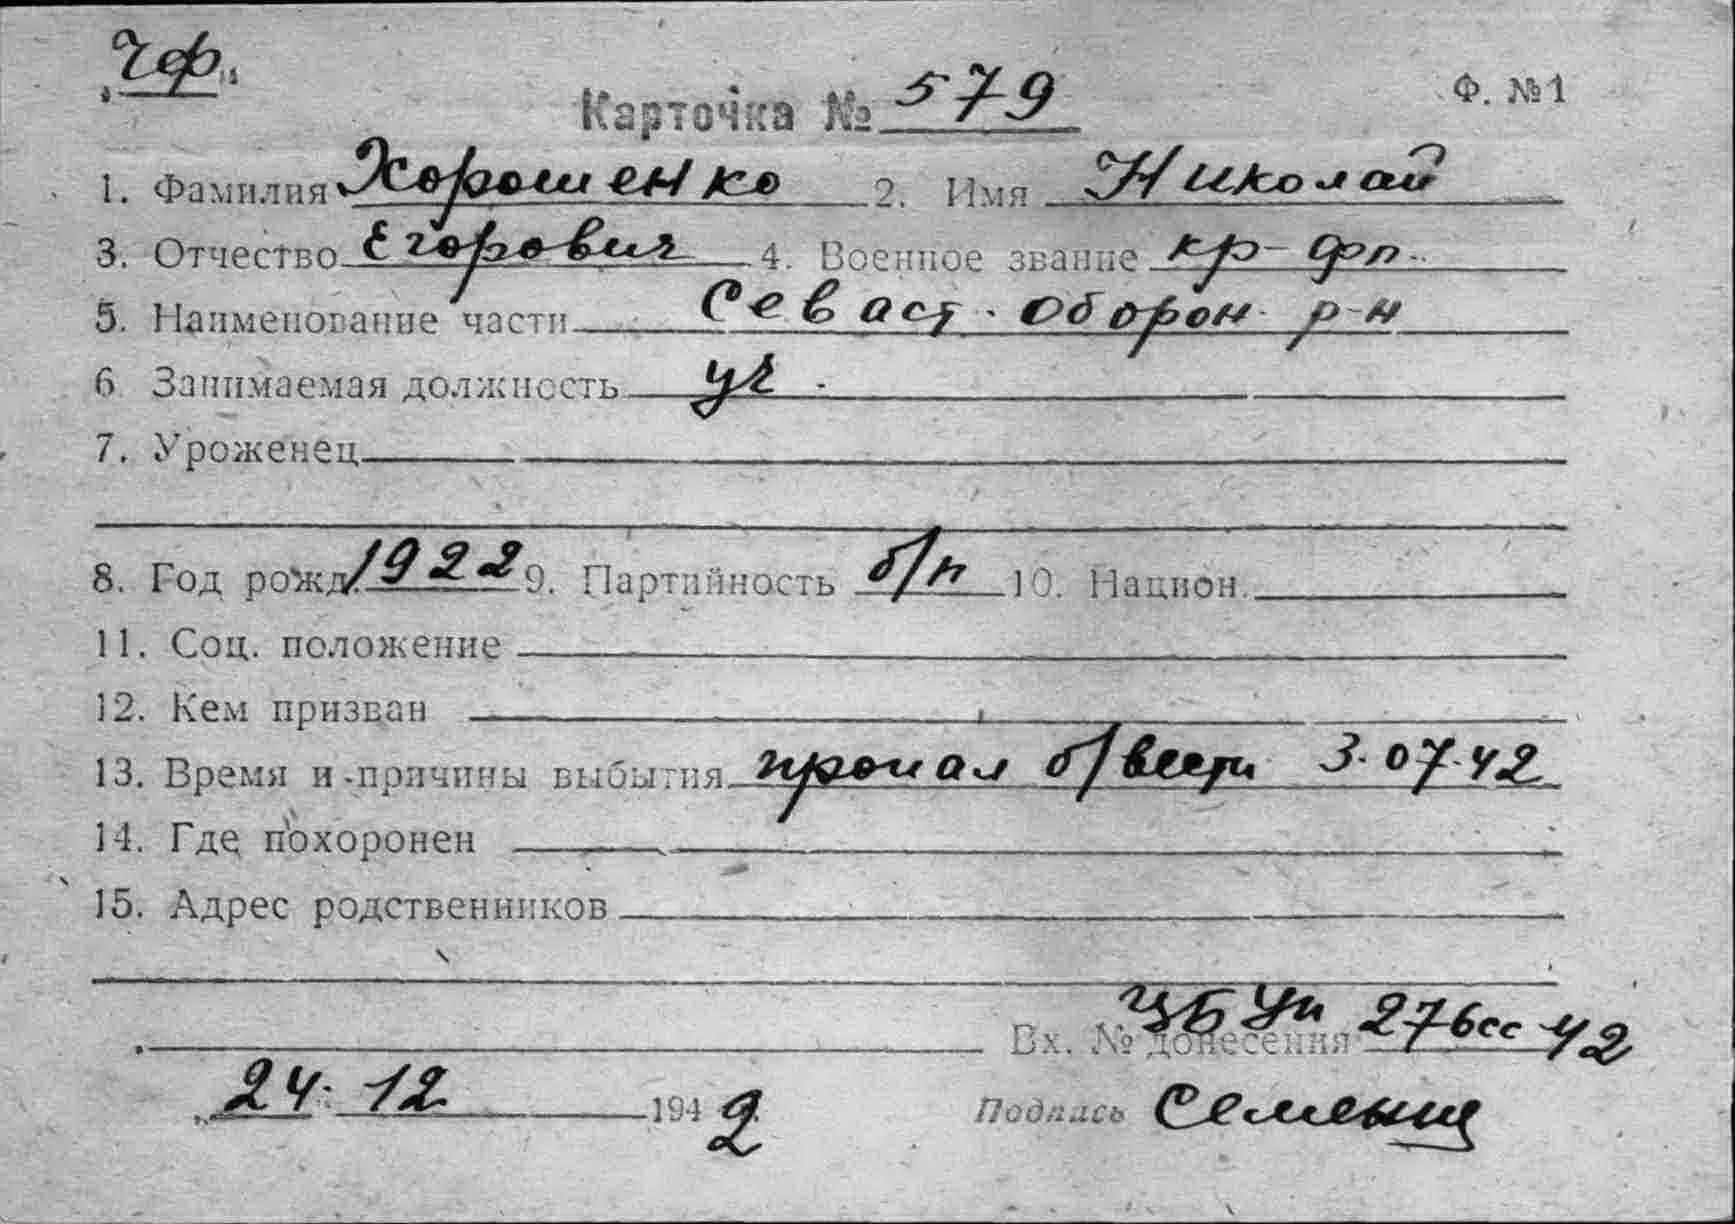 „Чф“
Карточка № 579 Ф. №1
1. Фамилия Хорошенко 2. Имя Николай
3. Отчество Егорович 4. Военное звание кр-фл.
5. Наименование части Севаст. оборон. р-н
6 Занимаемая должность уч.
7. Уроженец
8. Год рожд. 1922 9. Партийность б/п 10. Национ.
11. Соц. положение
12. Кем призван
13. Время и причины выбытия пропал б/вести 3.07.42
14. Где похоронен
15. Адрес родственников
Вх. № донесения 276сс 42
24. 12 1942 Подпись